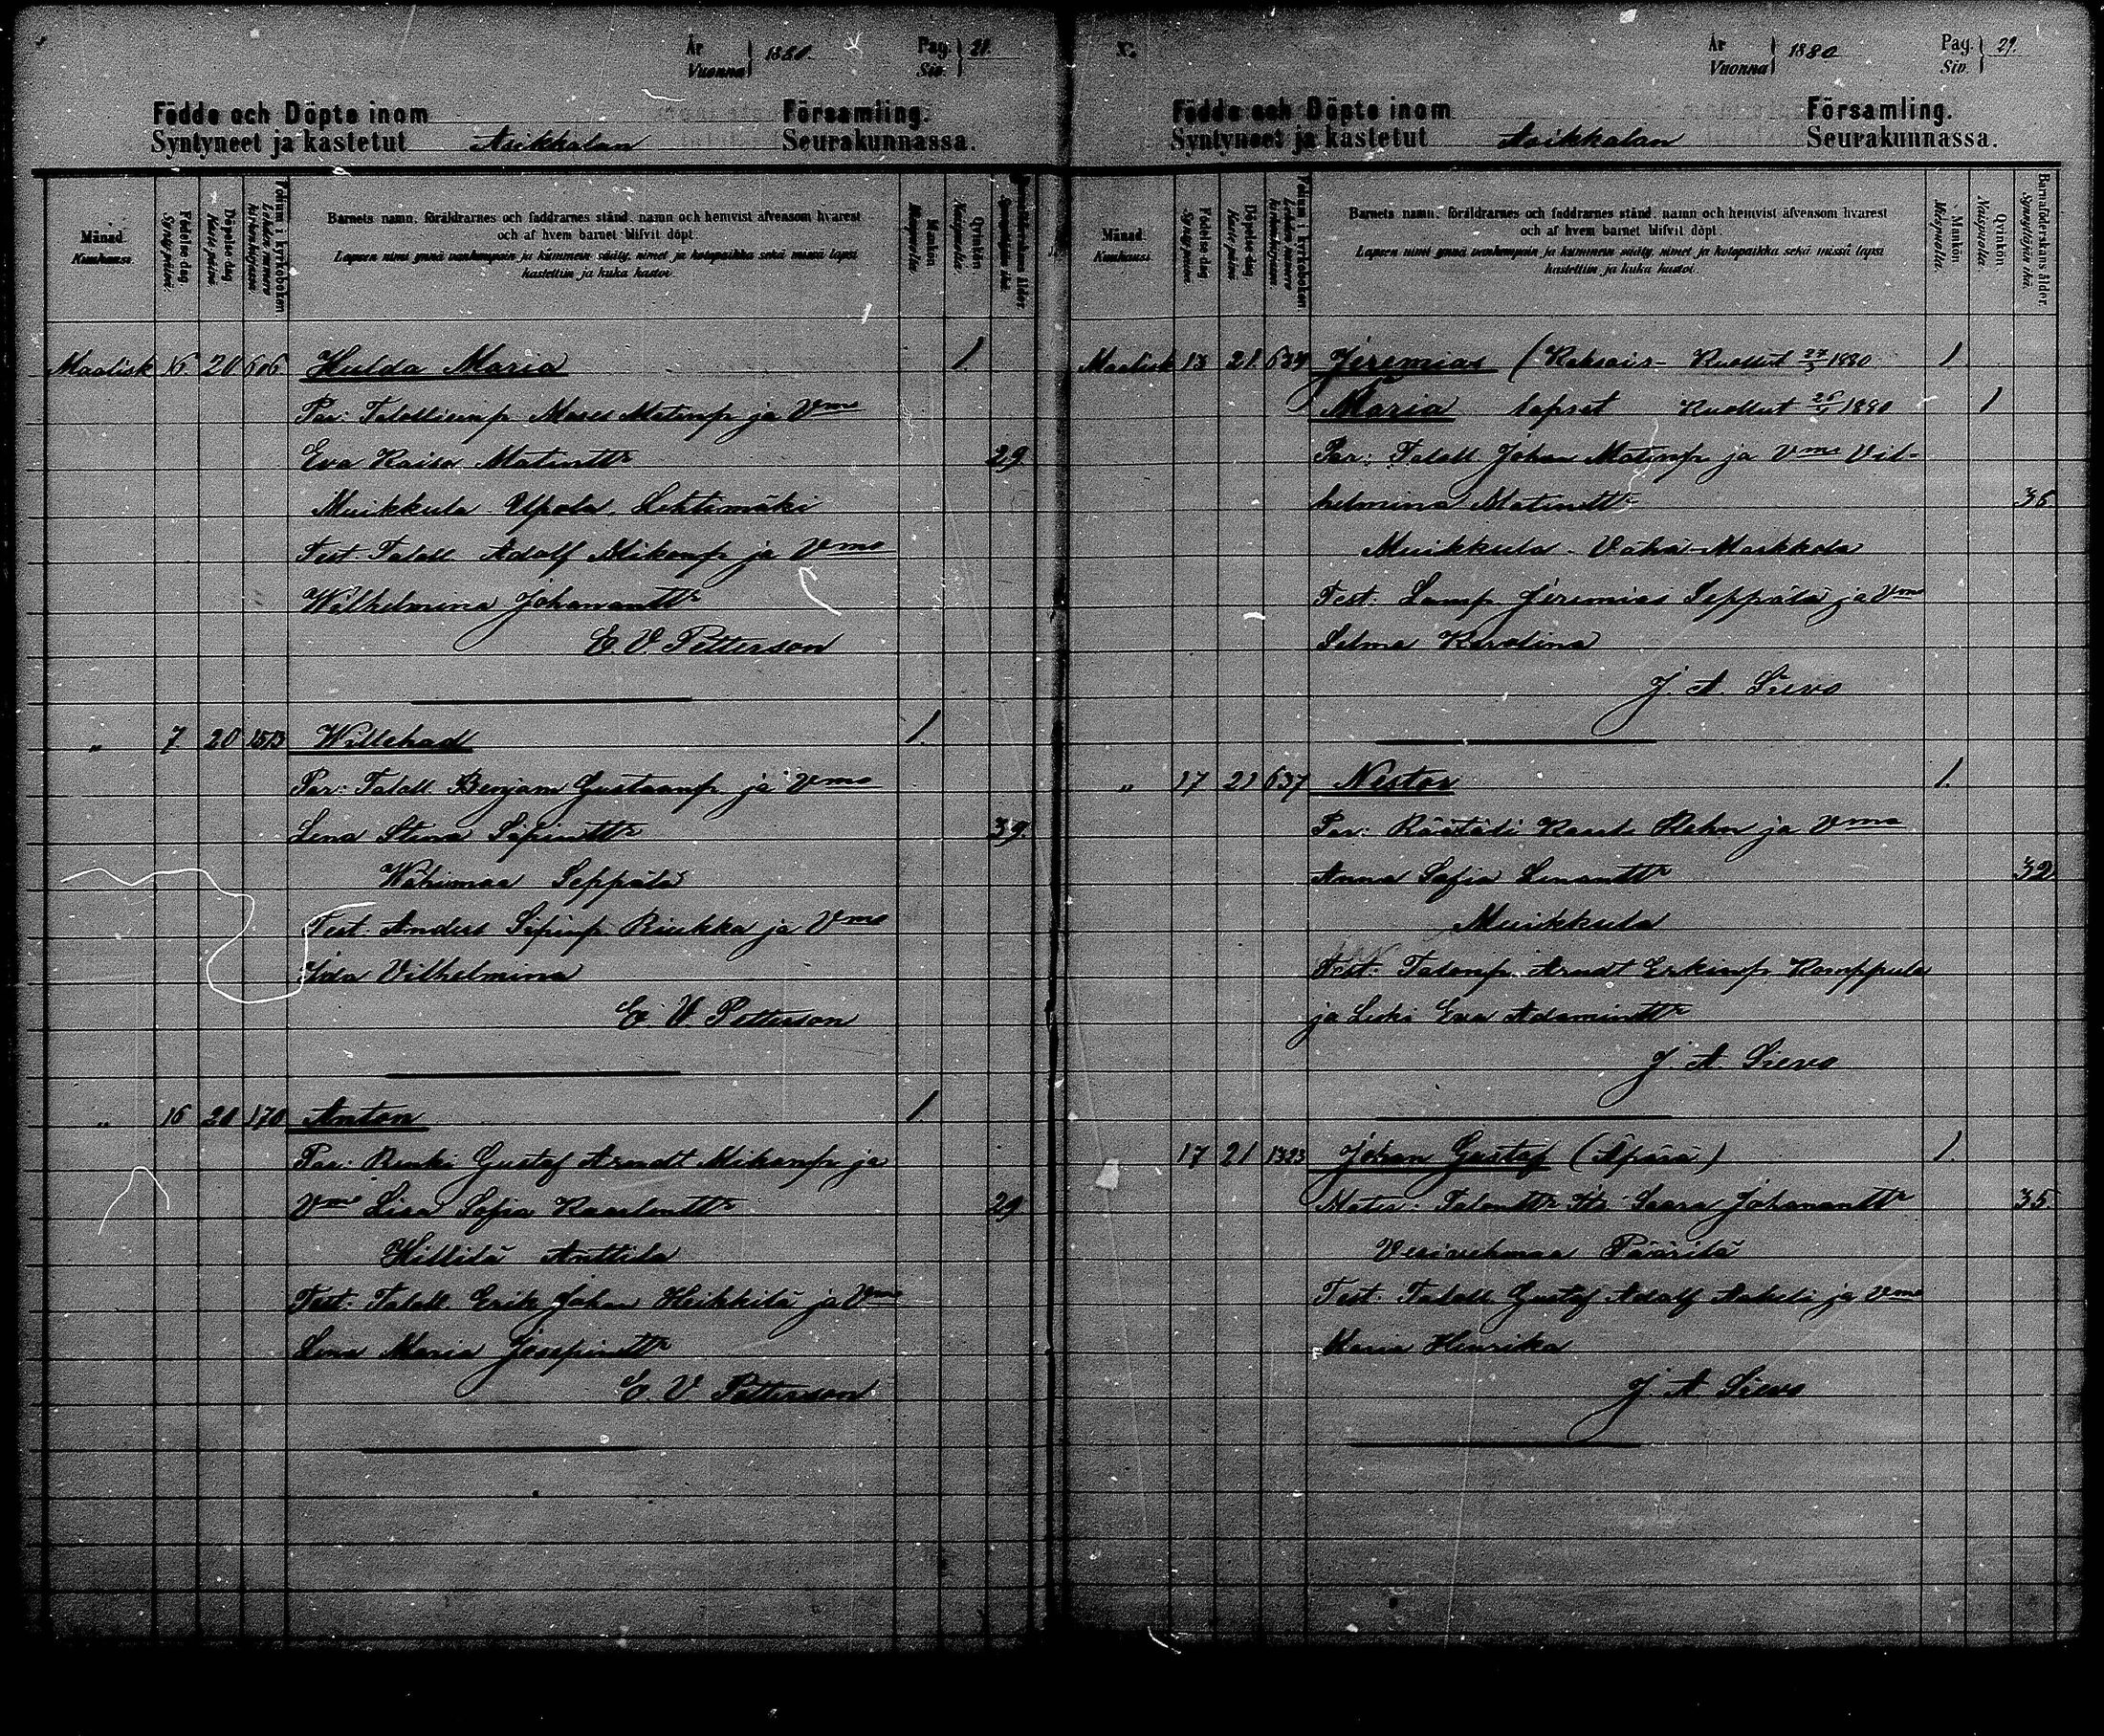 År
Vuonna } 1880. Pag.
Siv. } 21.
Födde och Döpte inom Församling.
Syntyneet ja kastetut Asikkalan Seurakunnassa.
Månad. Kuukausi.
Födelse dag Syntypäivä.
Döpelse dag Kaste päivä
Folium i kyrkoboken Lehden numero kirkonkirjassa.
Barnets namn, föräldrarnes och faddrarnes stånd, namn och hemvist äfvensom hvarest
och af hvem barnet blifvit döpt.
Lapsen nimi ynnä vanhempain ja kummein sääty, nimet ja kotopaikka sekä missä lapsi
kastettiin ja kuka kastoi.
Mankön Miespuolia.
Qvinkön Naispuolia.
Maalisk 16. 20 606 Hulda Maria 1.
Par: Mats Matinp ja Vmo
Eva Kaisa Matintr 29.
Muikkula Upola Lehtimäki
Test. Taloll. Adolf Mikonp ja Vmo
Wilhelmina Johanantr
E. V. Petterson
" 7 20 Willehad 1.
Par: Taloll. Benjam Gustaanp ja Vmo
Lena Stina Sipintr 39.
Wähimaa Seppälä
Test. Anders Sipinp Riukka ja Vmo
Ida Vilhelmina
E. V. Petterson
" 16 20 170 Anton 1.
Par: Renki Gustaf Arndt Mikonp ja
Vmo Lisa Sofia Kaarlentr 29
Hillilä Anttila
Test: Taloll. Erik Johan Heikkilä ja Vmo
Lena Maria Josepintr
E. V. Petterson
År
Vuonna } 1880 Pag.
Siv. } 29.
Födde och Döpte inom Församling.
Syntyneet ja kastetut Asikkalan Seurakunnassa.
Månad. Kuukausi.
Födelse dag Syntypäivä.
Döpelse dag Kaste päivä.
Folium i kyrkoboken Lehden numero kirkonkirjassa.
Barnets namn, föräldrarnes och faddrarnes stånd, namn och hemvist äfvensom hvarest
och af hvem barnet blifvit döpt.
Lapsen nimi ynnä vanhempain ja kummein sääty, nimet ja kotopaikka sekä missä lapsi
kastettiin ja kuka kastoi.
Mankön Miespuolia.
Qvinkön Naispuolia.
Barnaföderskans ålder. Synnyttäjän ikä.
Maalisk 13 21 639 Jeremias ( Kaksois- Kuollut 27/3 1880 1.
Maria lapset Kuollut 1880 1
Par: Taloll Johan Matinp ja Vmo Vil-
helmina Matintr 36.
Muikkula - Vähä-Markkola
Test: Lamp. Jeremias Seppälä ja Vmo
Selma Karolina
J. A. Sievo
" 17 21 637 Nestor 1.
Par: Räätäli Kaarle Stehn ja Vmo
Anna Sofia Simantr 32
Muikkula
Test: Talonp. Arndt Erkinp. Kamppula
ja Leski Eva Adamintr
J. A. Sievo
17 21 1323 Johan Gustaf (Äpärä) 1.
Mater: Talontr Its. Saara Johanantr 35.
Vesivehmaa Päärilä
Test: Taloll. Gustaf Adolf Aakeli ja Vmo
Maria Henrika
J. A. Sievo